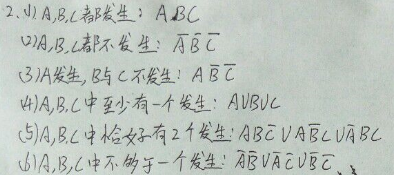 2.(1)A,B,C都发生: ABC
(2)A,B,C都不发生: A̅ B̅ C̅
(3)A发生,B与C不发生: A B̅ C̅
(4)A,B,C中至少有一个发生: A∪B∪C
(5)A,B,C中恰好有2个发生: ABC̅ ∪ AB̅C ∪ A̅BC
(6)A,B,C中不多于一个发生: A̅B̅ ∪ A̅C̅ ∪ B̅C̅